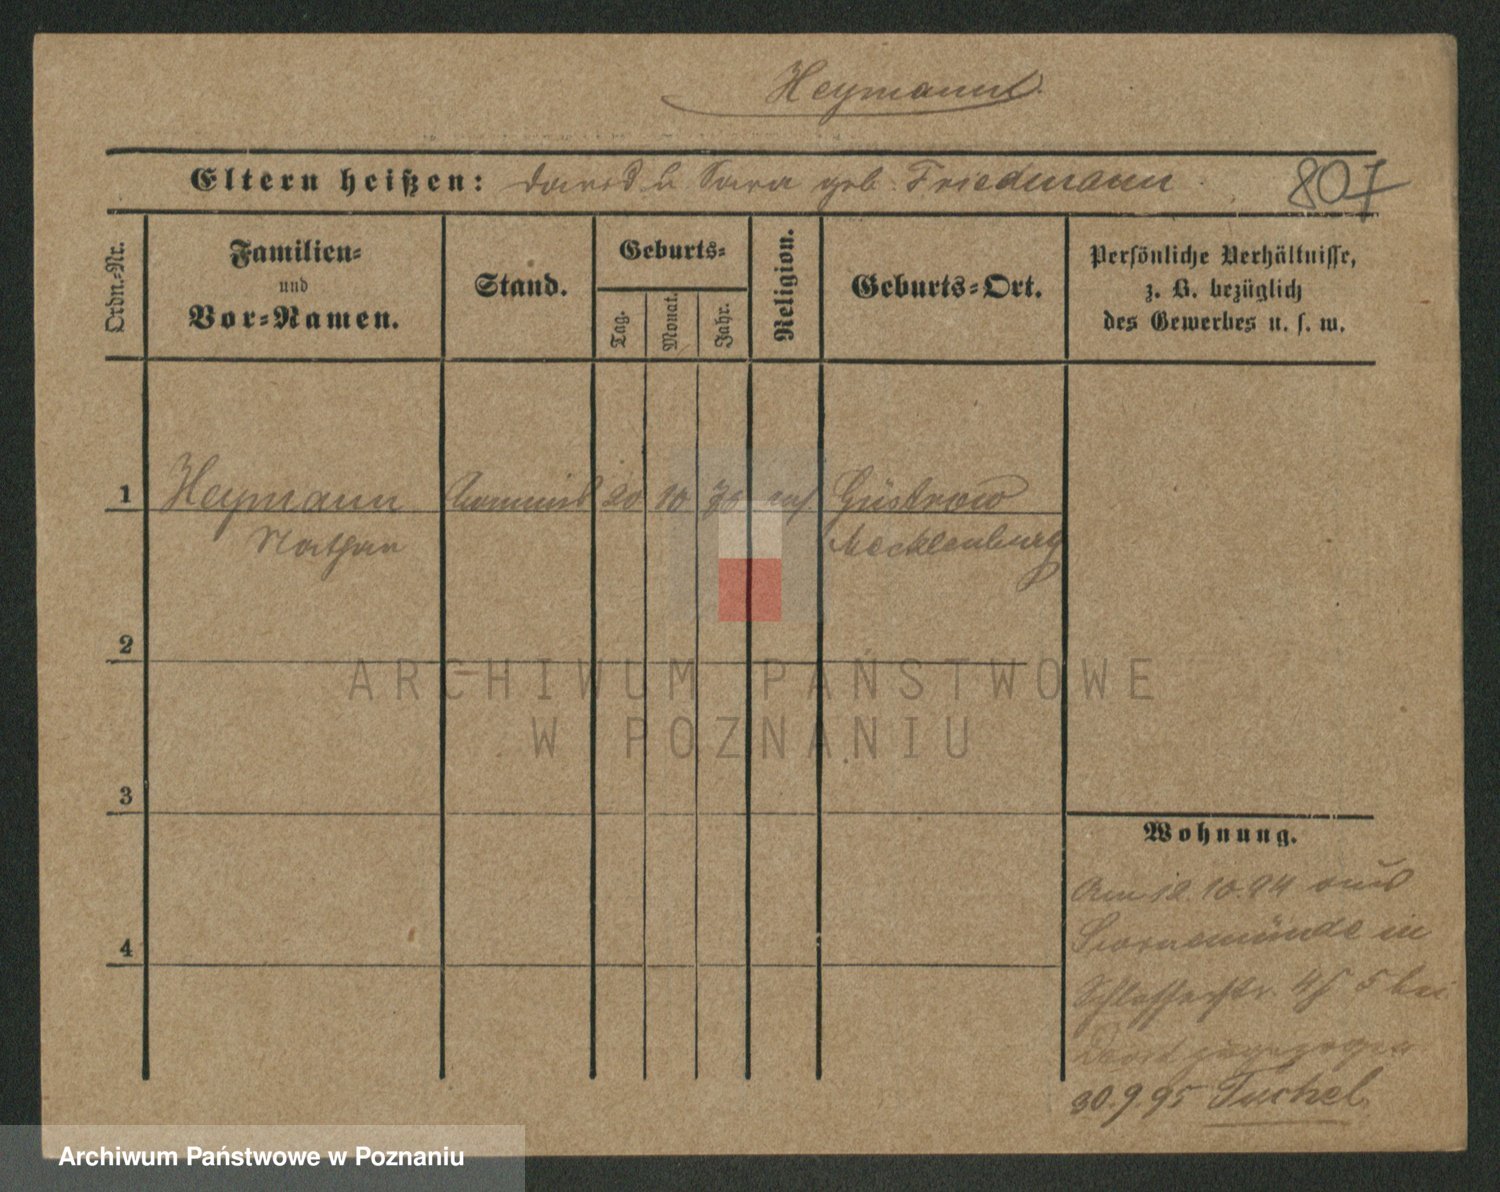 Heymann
Eltern heißen: David u Sara geb. Friedmann
807
Ordn.-Nr.
Familien-
und
Vor-Namen.
Stand.
Geburts-
Tag.
Monat.
Jahr.
Religion.
Geburts-Ort.
Persönliche Verhältnisse,
z. B. bezüglich
des Gewerbes u. s. w.
1 Heymann Commis 20 10 70 Güstrow
Nathan Mecklenburg
2
3
4
Wohnung.
Am 12.10.94 aus
in
Schlosserstr. 5 bei
zugezogen
30.9.95 Tuchel
ARCHIWUM PAŃSTWOWE
W POZNANIU
Archiwum Państwowe w Poznaniu